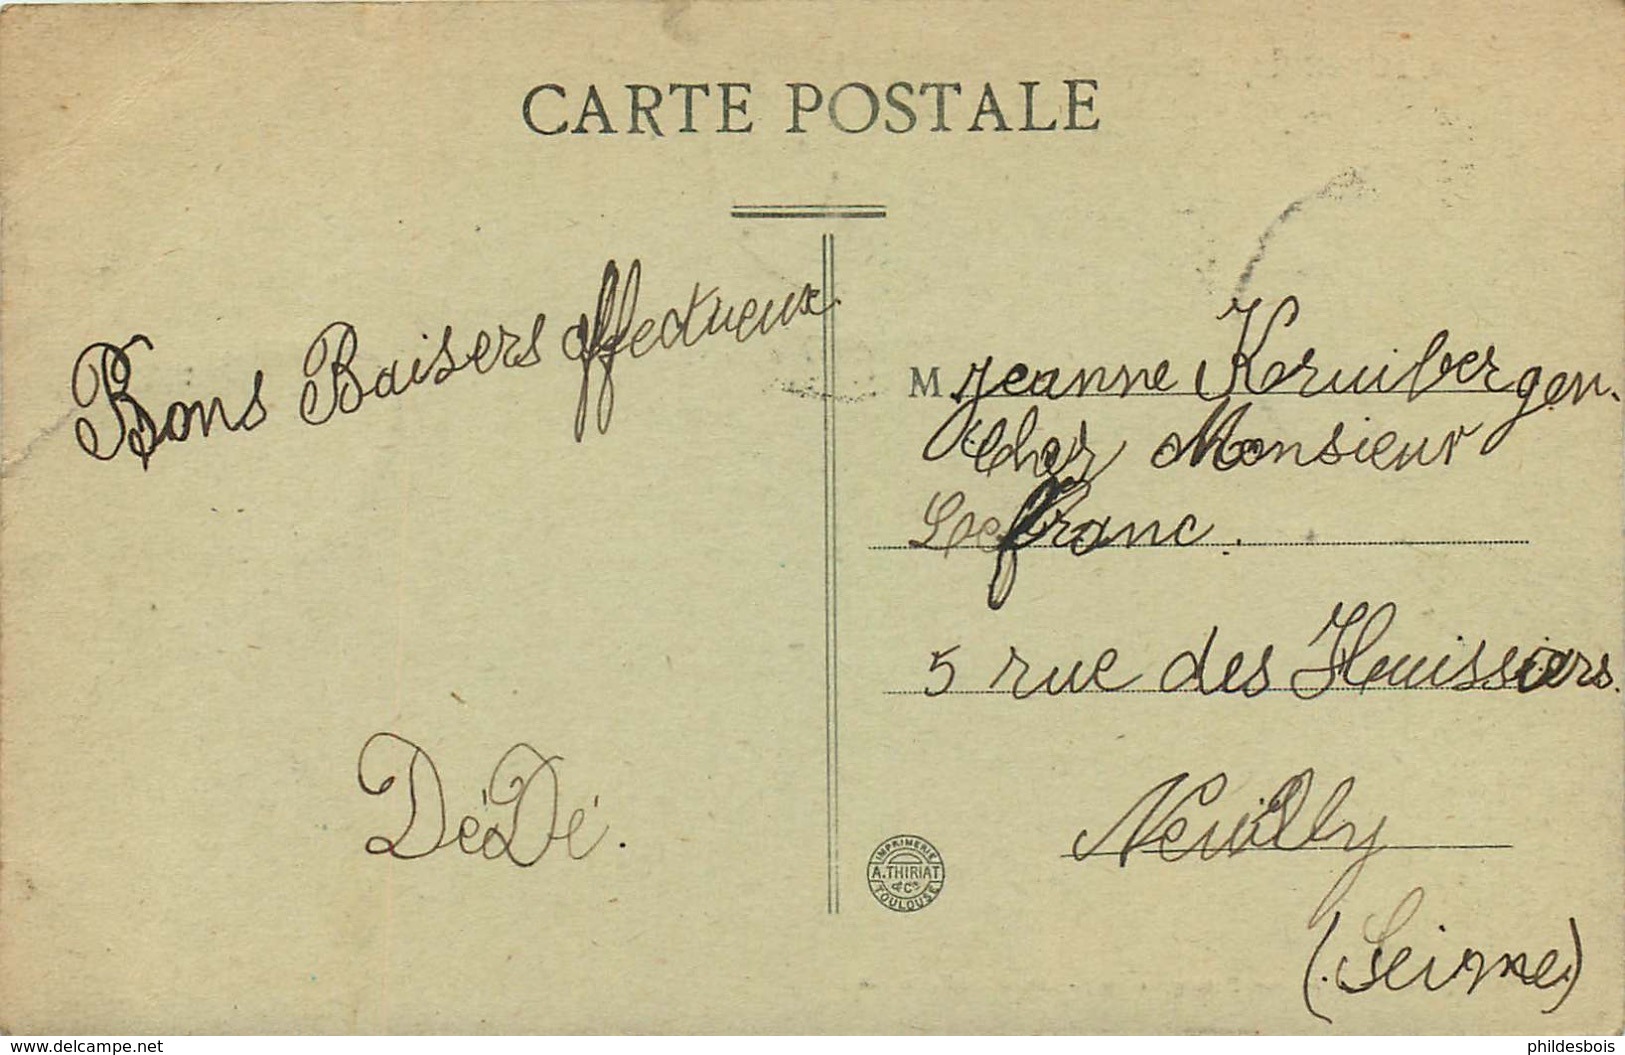 CARTE POSTALE
Bons Baisers affectueux
DéDé.
M Jeanne Kruibergen.
Chez Monsieur
Lefranc.
5 rue des Huissiers.
Neuilly
(Seine)
IMPRIMERIE
A. THIRIAT
& Cie
TOULOUSE
www.delcampe.net
phildesbois